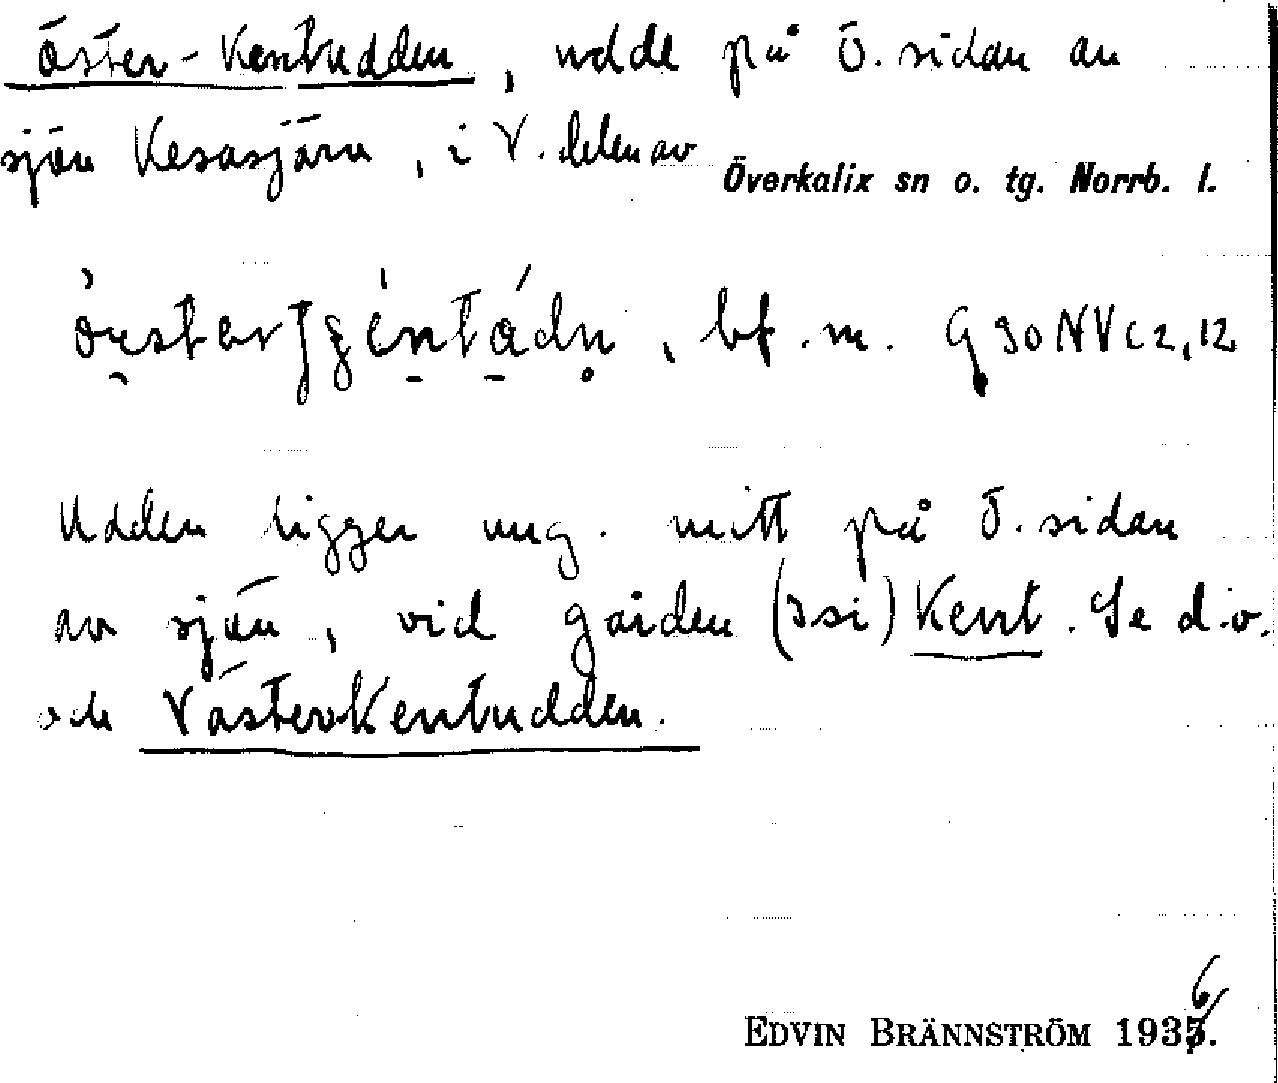 Öster-Kentudden, udde på Ö. sidan av
sjön Kesasjärv, i V. delen av Överkalix sn o. tg. Norrb. l.
bf. m. G 30 NV c 2, 12
Udden ligger ung. mitt på Ö. sidan
av sjön, vid gården (331) Kent. Se d. o.
och Västerkentudden.
EDVIN BRÄNNSTRÖM 1936.